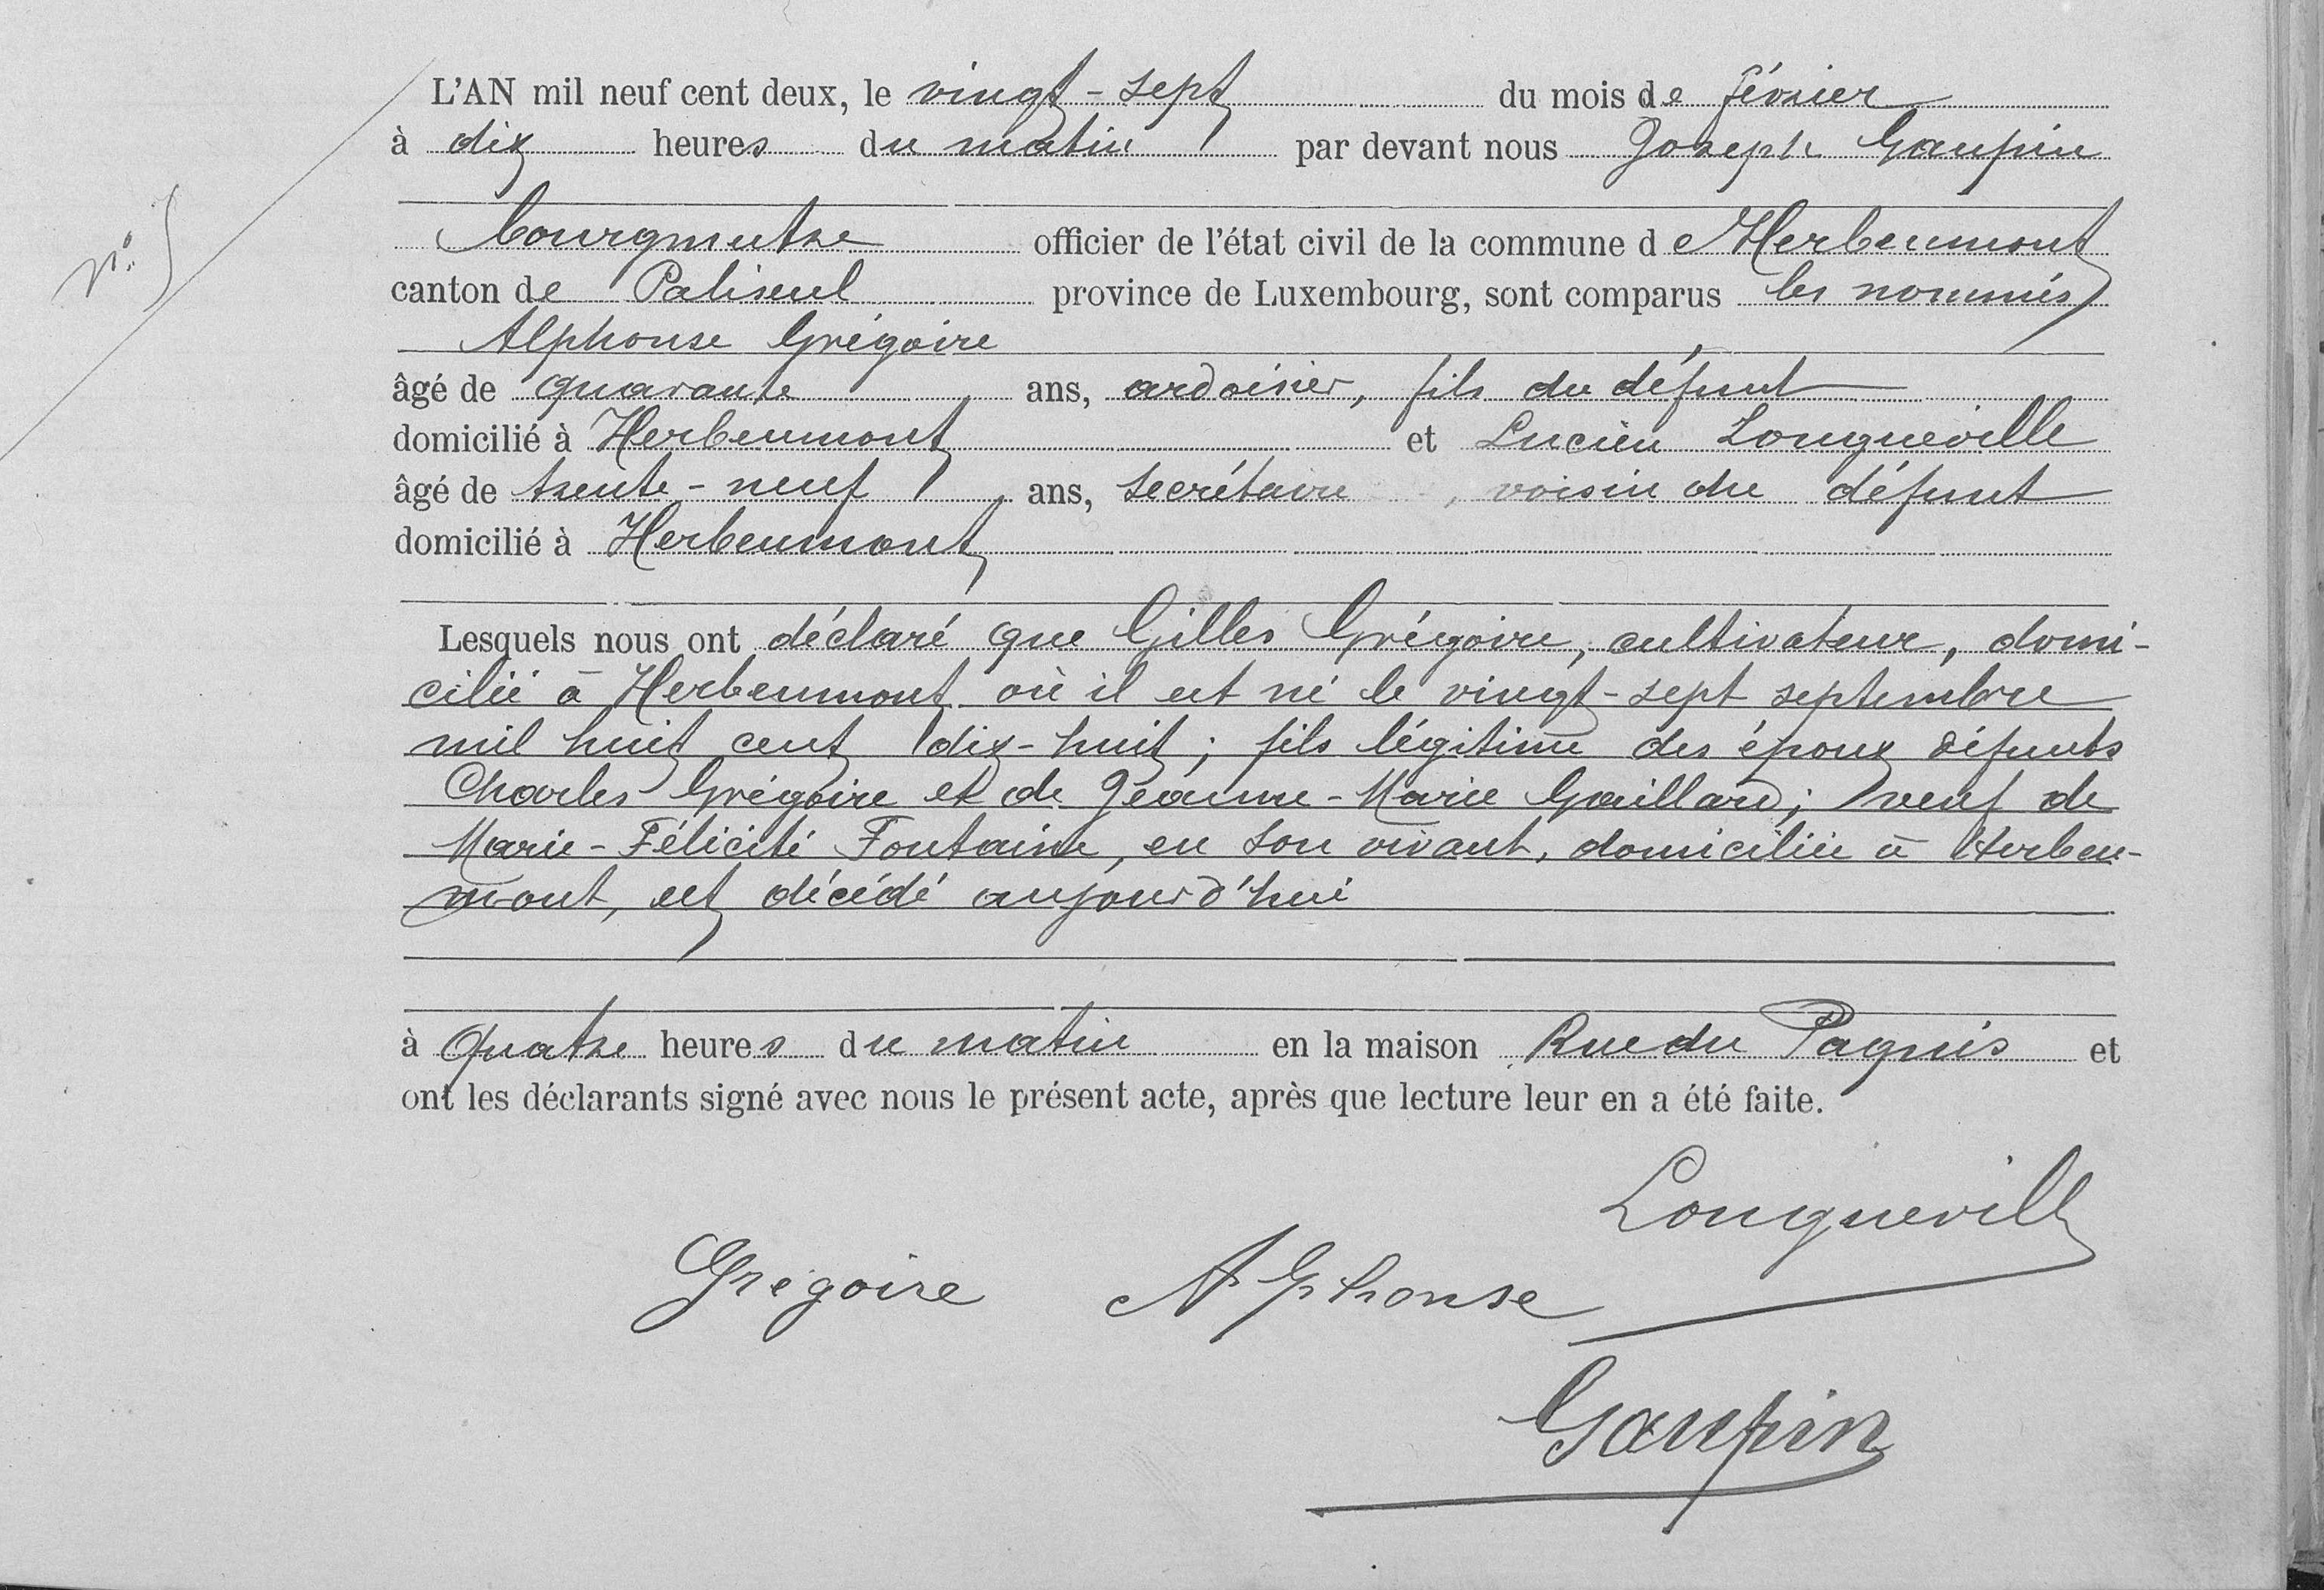 L'AN mil neuf cent deux, le vingt-sept du mois de février
à dix heures du matin par devant nous Joseph Gaupin
n° 5
bourgmestre officier de l'état civil de la commune de Herbeumont
canton de Paliseul province de Luxembourg, sont comparus les nommés
Alphonse Grégoire
âgé de quarante ans, ardoisier, fils du défunt
domicilié à Herbeumont et Lucien Longueville
âgé de trente-neuf ans, secrétaire, voisin du défunt
domicilié à Herbeumont
Lesquels nous ont déclaré que Gilles Grégoire, cultivateur, domi-
cilié à Herbeumont où il est né le vingt-sept septembre
mil huit cent dix-huit; fils légitime des époux défunts
Charles Grégoire et de Jeanne-Marie Gaillard; veuf de
Marie-Félicité Fontaine, en son vivant, domiciliée à Herbeu-
mont, est décédé aujourd'hui
à quatre heures du matin en la maison Rue du Paquis et
ont les déclarants signé avec nous le présent acte, après que lecture leur en a été faite.
Longueville
Grégoire Alphonse
Gaupin